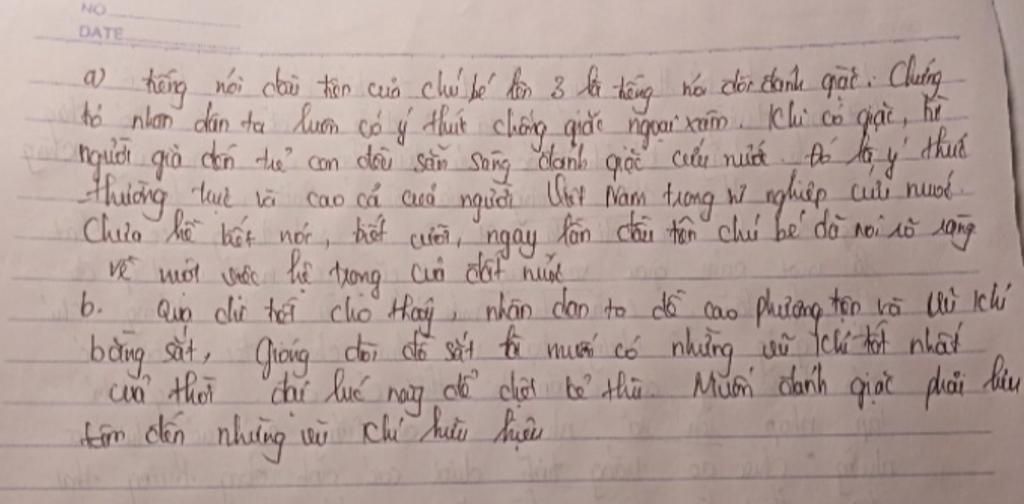 NO
DATE
a) tiếng nói đầu tiên của chú bé lên 3 là tiếng nói đòi đánh giặc. Chứng
tỏ nhân dân ta luôn có ý thức chống giặc ngoại xâm. Khi có giặc, từ
người già đến trẻ con đều sẵn sàng đánh giặc cứu nước. Đó là ý thức
thường trực và cao cả của người Việt Nam trong sự nghiệp cứu nước.
Chưa hề biết nói, biết cười, ngay lần đầu tiên chú bé đã nói rõ ràng
về một việc hệ trọng của đất nước
b. Qua chi tiết cho thấy, nhân dân ta đề cao phương tiện và vũ khí
bằng sắt, Gióng đòi đồ sắt là muốn có những vũ khí tốt nhất
của thời đại lúc này để diệt kẻ thù. Muốn đánh giặc phải lưu
tâm đến những vũ khí hữu hiệu